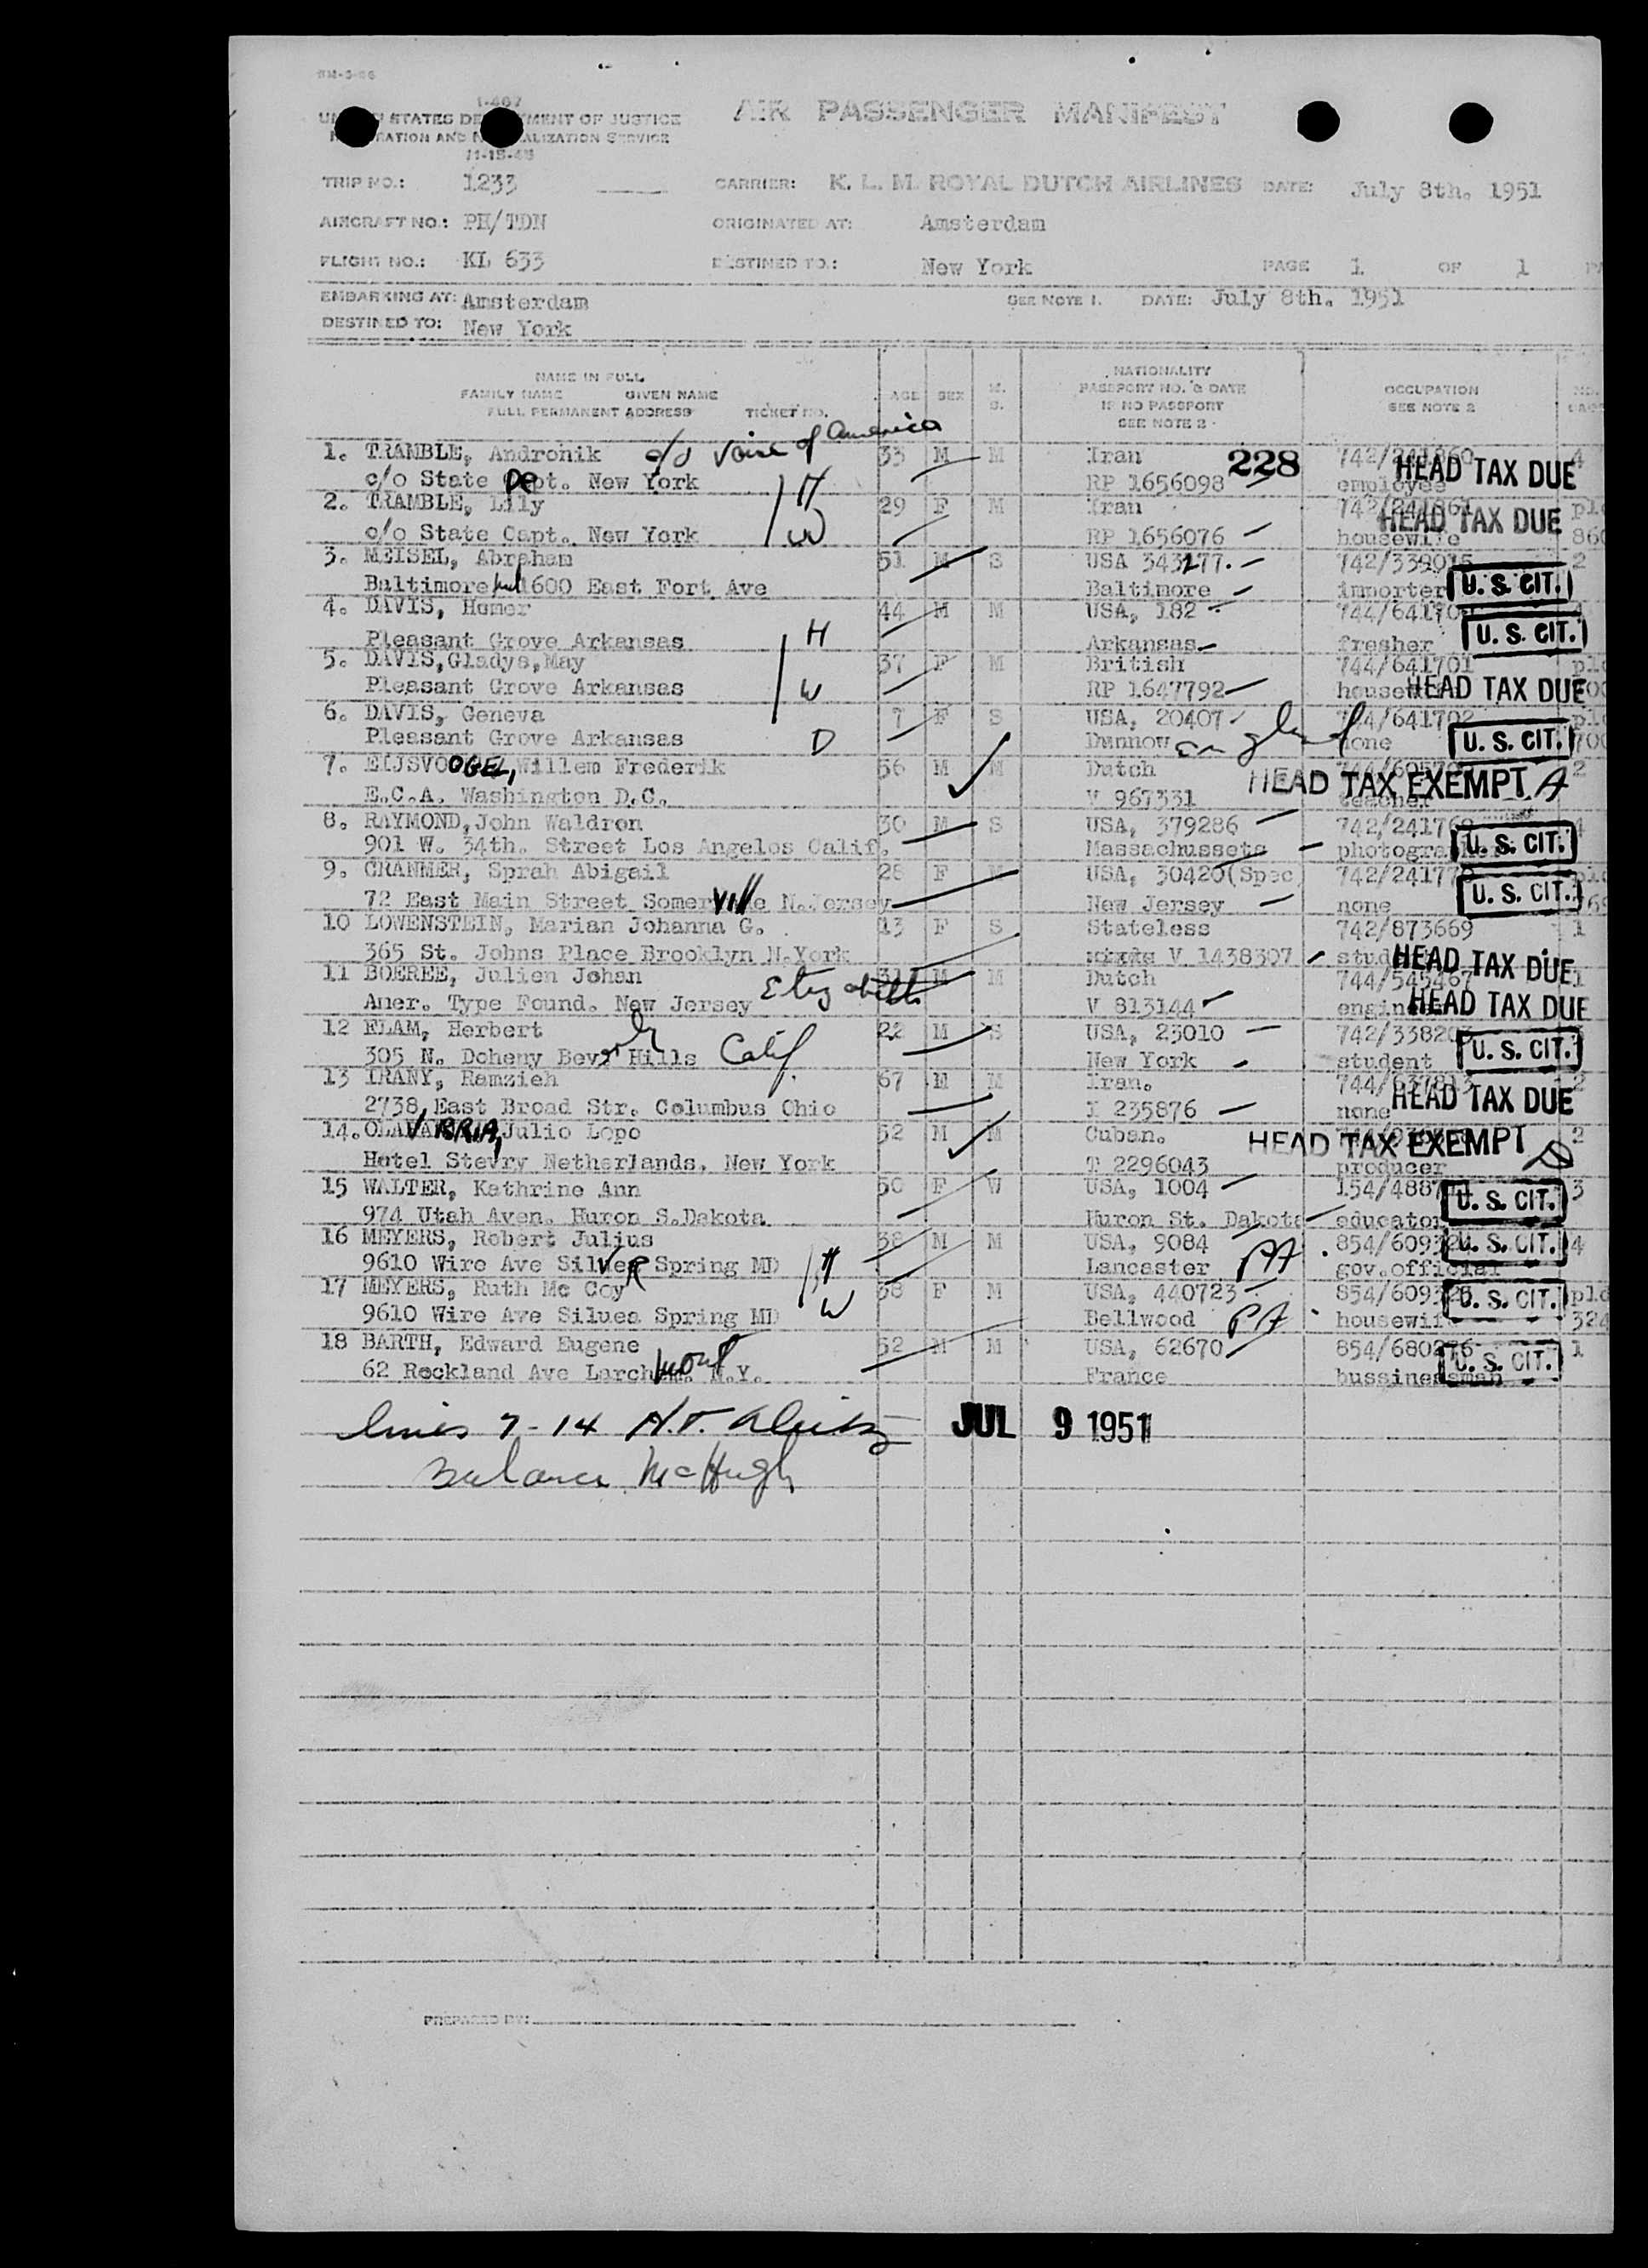 I-467
UNITED STATES DEPARTMENT OF JUSTICE
IMMIGRATION AND NATURALIZATION SERVICE
11-15-45
AIR PASSENGER MANIFEST
TRIP NO.: 1233 CARRIER: K. L. M. ROYAL DUTCH AIRLINES DATE: July 8th. 1951
AIRCRAFT NO.: PH/TDN ORIGINATED AT: Amsterdam
FLIGHT NO.: KL 633 DESTINED TO.: New York PAGE 1 OF 1
EMBARKING AT: Amsterdam SEE NOTE 1. DATE: July 8th. 1951
DESTINED TO: New York
NAME IN FULL
FAMILY NAME GIVEN NAME
FULL PERMANENT ADDRESS TICKET NO.
AGE SEX M. S.
NATIONALITY
PASSPORT NO. & DATE
IF NO PASSPORT
SEE NOTE 2
OCCUPATION
SEE NOTE 2
1. TRAMBLE, Andronik c/o Voice of America 33 M M Iran 228 742/241860 4 HEAD TAX DUE
c/o State Dept. New York H RP 1656098 employee
2. TRAMBLE, Lily 29 F M Iran 742/241861 HEAD TAX DUE
c/o State Capt. New York W RP 1656076 housewife 860
3. MEISEL, Abraham 51 M S USA 343177. 742/339015 2
Baltimore Md 1600 East Fort Ave Baltimore importer U. S. CIT.
4. DAVIS, Homer 44 M M USA, 182 4
Pleasant Grove Arkansas H Arkansas fresher U. S. CIT.
5. DAVIS,Gladys,May 37 F M British 744/641701
Pleasant Grove Arkansas W RP 1647792 HEAD TAX DUE
6. DAVIS, Geneva 7 F S USA, 20407 744/641702
Pleasant Grove Arkansas D Dunnow England none U. S. CIT.
7. EIJSVOOGEL, Willem Frederik 56 M M Dutch 2
E.C.A. Washington D.C. V 967331 teacher HEAD TAX EXEMPT A
8. RAYMOND,John Waldron 30 M S USA, 379286 4
901 W. 34th. Street Los Angelos Calif. Massachussets U. S. CIT.
9. CRANMER, Sprah Abigail 28 F M USA, 30420(Spec)
72 East Main Street Somerville N.Jersey New Jersey none U. S. CIT.
10 LOWENSTEIN, Marian Johanna G. 13 F S Stateless 742/873669 1
365 St. Johns Place Brooklyn N.York V 1438307 HEAD TAX DUE
11 BOEREE, Julien Johan 31 M M Dutch 744/545467 1
Amer. Type Found. New Jersey Elizabeth V 813144 HEAD TAX DUE
12 ELAM, Herbert 22 M S USA, 23010
305 N. Doheny Beverly Hills Calif. New York student U. S. CIT.
13 IRANY, Ramzieh 67 M M Iran. 744/637813 2
2738 East Broad Str. Columbus Ohio I 235876 none HEAD TAX DUE
14. OLAVARRIA, Julio Lopo 52 M M Cuban. 2
Hotel Stevry Netherlands. New York T 2296043 producer HEAD TAX EXEMPT
15 WALTER, Kathrine Ann 50 F W USA, 1004 3
974 Utah Aven. Huron S.Dakota Huron St. Dakota educator U. S. CIT.
16 MEYERS, Robert Julius 38 M M USA, 9084 U. S. CIT. 4
9610 Wire Ave Silver Spring MD H Lancaster PA gov.official
17 MEYERS, Ruth Mc Coy 38 F M USA, 440723 U. S. CIT. pld
9610 Wire Ave Silues Spring MD W Bellwood PA housewife 324
18 BARTH, Edward Eugene 52 M M USA, 62670 1
62 Rockland Ave Larchmont N.Y. France bussinessman U. S. CIT.
lines 7-14 JUL 9 1951
Balance McHugh
PREPARED BY: